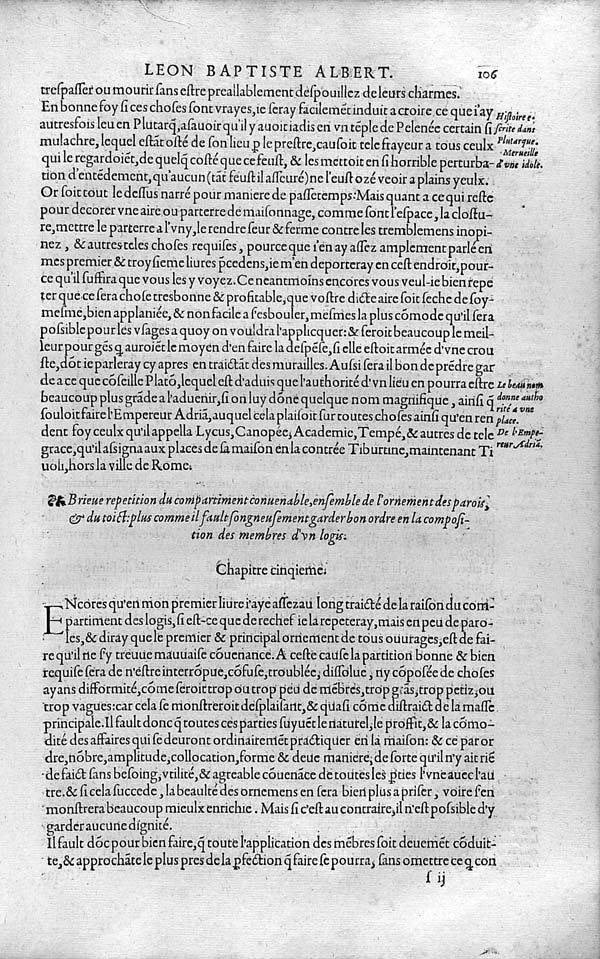 LEON BAPTISTE ALBERT. 106
trespasser ou mourir sans estre preallablement despouillez de leurs charmes.
En bonne foy si ces choses sont vrayes, ie seray facilemẽt induit a croire ce que i'ay
autresfois leu en Plutarq̃, asauoir qu'il y auoit iadis en vn tẽple de Pelenée certain si
mulachre, lequel estãt osté de son lieu p̱ le prestre, causoit tele frayeur a tous ceulx
qui le regardoiẽt, de quelq̃ costé que ce feust, & les mettoit en si horrible perturba-
tion d'entẽdement, qu'aucun (tãt feust il asseuré) ne l'eust ozé veoir a plains yeulx.
Histoire e-
scrite dans
Plutarque.
Merueille
d'vne idole.
Or soit tout le dessus narré pour maniere de passetemps: Mais quant a ce qui reste
pour decorer vne aire ou parterre de maisonnage, comme sont l'espace, la clostu-
re, mettre le parterre a l'vny, le rendre seur & ferme contre les tremblemens inopi-
nez, & autres teles choses requises, pource que i'en ay assez amplement parlé en
mes premier & troysieme liures p̱cedens, ie m'en deporteray en cest endroit, pour-
ce qu'il suffira que vous les y voyez. Ce neantmoins encores vous veul-ie bien repe
ter que ce sera chose tresbonne & profitable, que vostre dicte aire soit seche de soy-
mesme, bien applaniée, & non facile a s'esbouler, mesmes la plus cõmode qu'il sera
possible pour les vsages a quoy on vouldra l'applicquer: & seroit beaucoup le meil-
leur pour gẽs q̃ auroiẽt le moyen d'en faire la despẽse, si elle estoit armée d'vne crou
ste, dõt ie parleray cy apres en traictãt des murailles. Aussi sera il bon de prẽdre gar
de a ce que cõseille Platõ, lequel est d'aduis que l'authorité d'vn lieu en pourra estre
beaucoup plus grãde a l'aduenir, si on luy dõne quelque nom magnifique, ainsi q̃
souloit faire l'Empereur Adriã, auquel cela plaisoit sur toutes choses ainsi qu'en ren
dent foy ceulx qu'il appella Lycus, Canopée, Academie, Tempé, & autres de tele
grace, qu'il assigna aux places de sa maison en la contrée Tiburtine, maintenant Ti
uoli, hors la ville de Rome.
Le beau nom
donne autho
rité a vne
place.
De l'Empe-
reur Adriã.
Brieue repetition du compartiment conuenable, ensemble de l'ornement des parois,
& du toict: plus comme il fault songneusement garder bon ordre en la composi-
tion des membres d'vn logis.
Chapitre cinqieme.
ENcores qu'en mon premier liure i'aye assez au long traicté de la raison du com-
partiment des logis, si est-ce que de rechef ie la repeteray, mais en peu de paro-
les, & diray que le premier & principal ornement de tous ouurages, est de fai-
re qu'il ne s'y treuue mauuaise cõuenance. A ceste cause la partition bonne & bien
requise sera de n'estre interrõpue, cõfuse, troublée, dissolue, ny cõposée de choses
ayans difformité, cõme seroit trop ou trop peu de mẽbres, trop grãs, trop petiz, ou
trop vagues: car cela se monstreroit desplaisant, & quasi cõme distraict de la masse
principale. Il fault donc q̃ toutes ces parties suyuẽt le naturel, le proffit, & la cõmo-
dité des affaires qui se deuront ordinairemẽt practiquer en la maison: & ce par or
dre, nõbre, amplitude, collocation, forme & deue maniere, de sorte qu'il n'y ait riẽ
de faict sans besoing, vtilité, & agreable cõuenãce de toutes les p̱ties l'vne auec l'au
tre. & si cela succede, la beaulté des ornemens en sera bien plus a priser, voire s'en
monstrera beaucoup mieulx enrichie. Mais si c'est au contraire, il n'est possible d'y
garder aucune dignité.
Il fault dõc pour bien faire, q̃ toute l'application des mẽbres soit deuemẽt cõduit-
te, & approchãte le plus pres de la p̱fection q̃ faire se pourra, sans omettre ce q̃ con
s ij